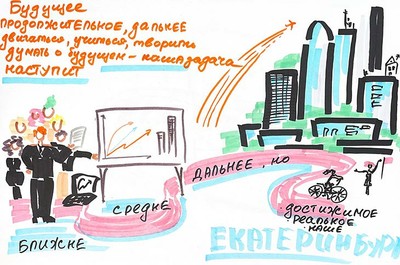 Будущее
ПРОДОЛЖИТЕЛЬНОЕ, ДАЛЬНЕЕ
двигаться, учиться, творить
думать о будущем - наша задача
НАСТУПИТ
ДАЛЬНЕЕ, но
СРЕДНЕ
БЛИЖНЕ
ДОСТИЖИМОЕ
РЕАЛЬНОЕ
НАШЕ
ЕКАТЕРИНБУРГ